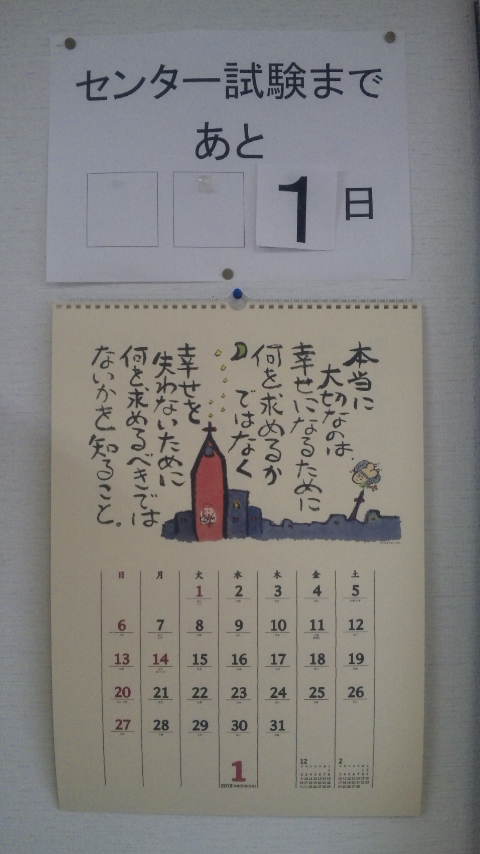 センター試験まで
あと
1日
本当に
大切なのは
幸せになるために
何を求めるか
ではなく
幸せを
失わないために
何を求めるべきでは
ないかを知ること。
日 月 火 水 木 金 土
1 2 3 4 5
6 7 8 9 10 11 12
13 14 15 16 17 18 19
20 21 22 23 24 25 26
27 28 29 30 31
1
12 2